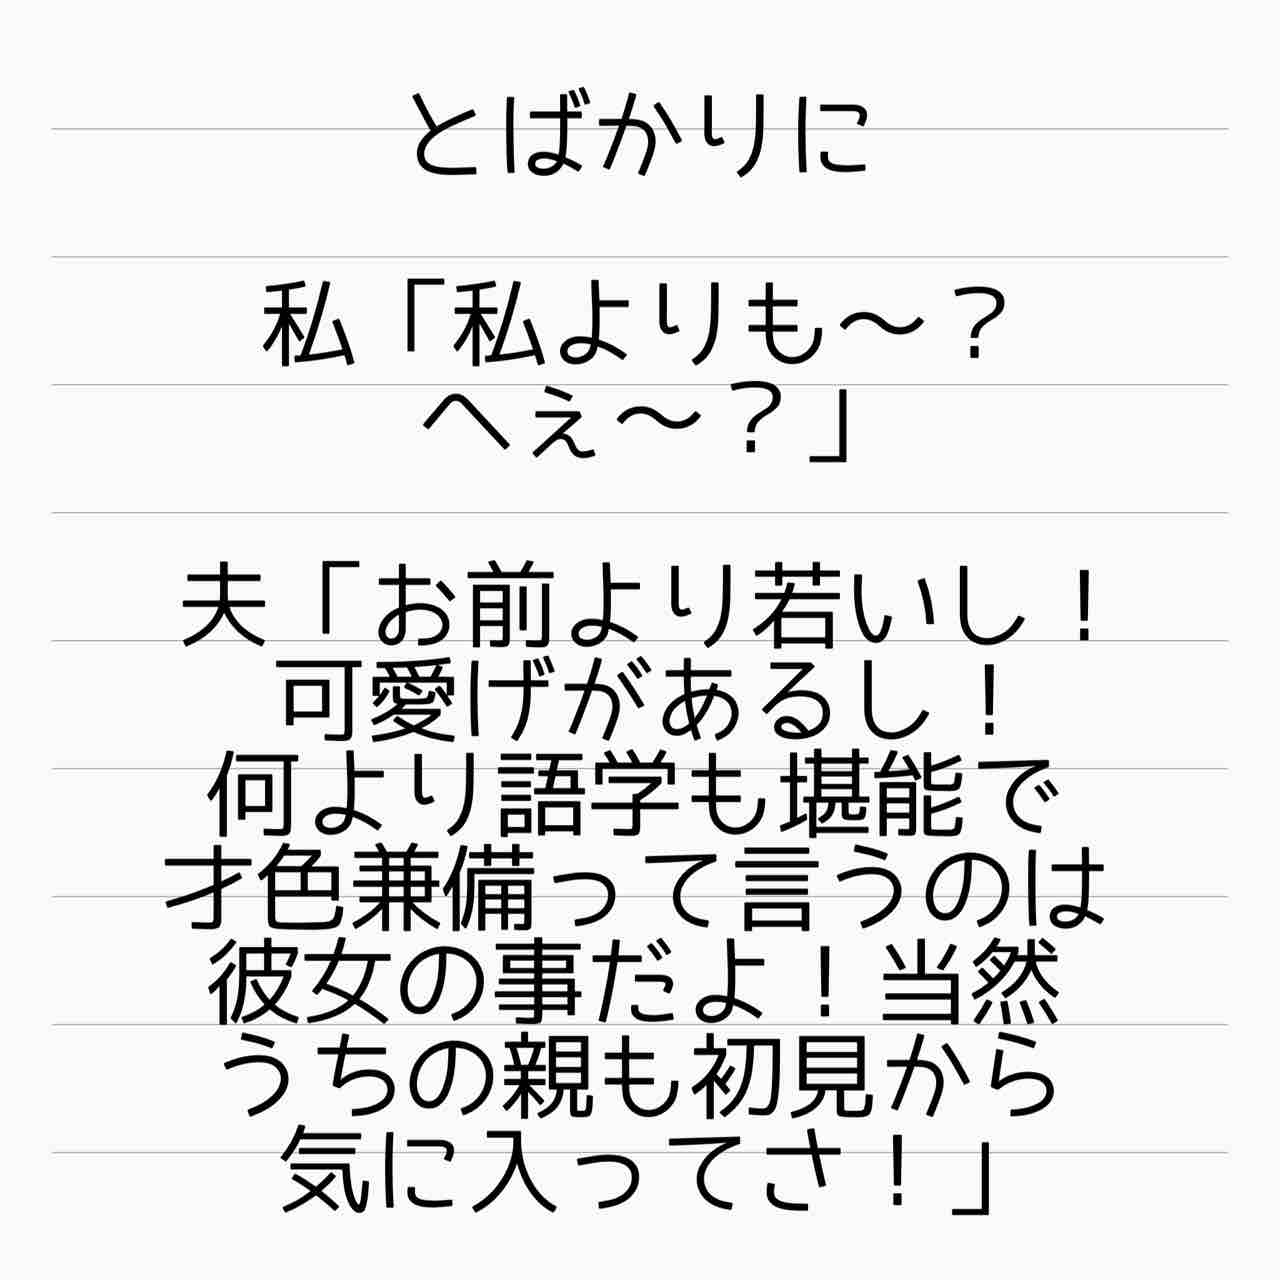 とばかりに
私「私よりも〜？
へぇ〜？」
夫「お前より若いし！
可愛げがあるし！
何より語学も堪能で
才色兼備って言うのは
彼女の事だよ！当然
うちの親も初見から
気に入ってさ！」